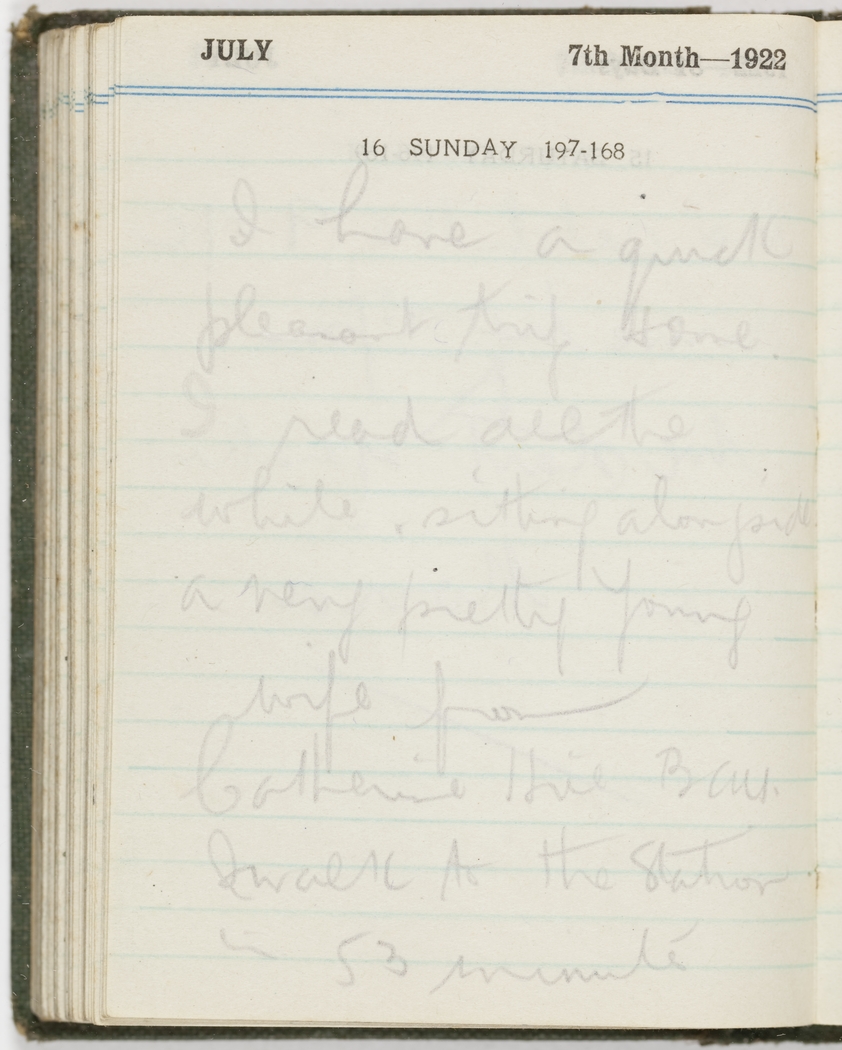 JULY 7th Month—1922
16 SUNDAY 197-168
I have a quick
pleasant trip home.
I read all the
while, sitting alongside
a very pretty young
wife from
Catherine Hill Bay.
I walk to the Station
in 53 minute